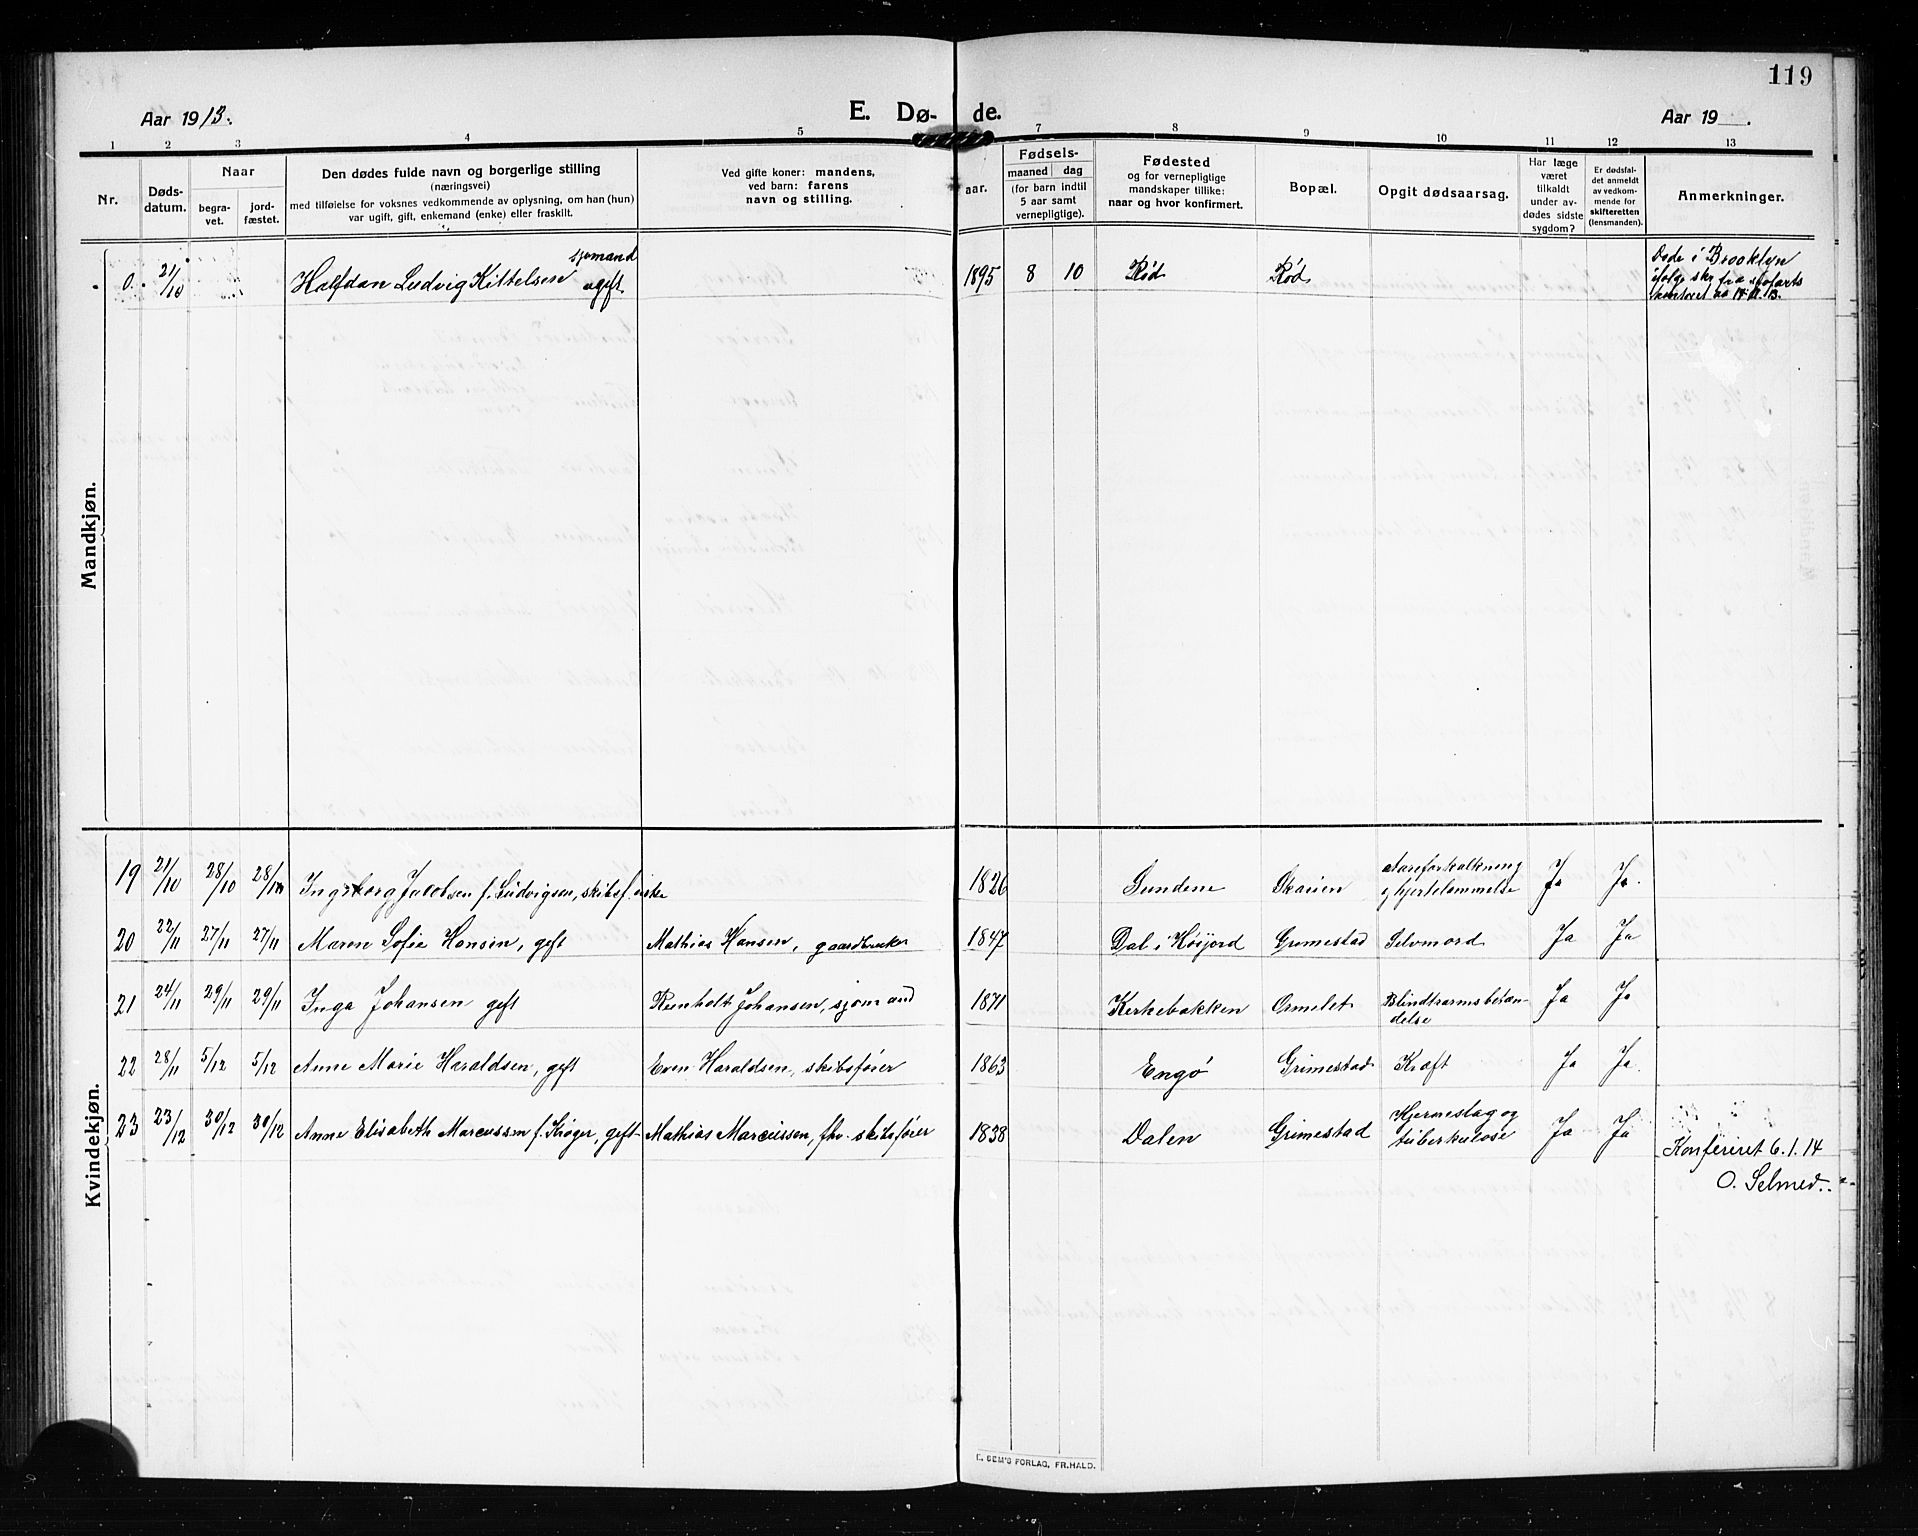 119
Aar 1913.
E. Dø- de.
Aar 19 .
1 2 3 4 5 7 8 9 10 11 12 13
Nr.
Døds-
datum.
Naar
begra-
vet.
jord-
fæstet.
Den dødes fulde navn og borgerlige stilling
(næringsvei)
med tilføielse for voksnes vedkommende av oplysning, om han (hun)
var ugift, gift, enkemand (enke) eller fraskilt.
Ved gifte koner: mandens,
ved barn: farens
navn og stilling.
aar.
Fødsels-
maaned dag
(for barn indtil
5 aar samt
vernepligtige).
Fødested
og for vernepligtige
mandskaper tillike:
naar og hvor konfirmert.
Bopæl.
Opgit dødsaarsag.
Har læge
været
tilkaldt
under av-
dødes sidste
sygdom?
Er dødsfal-
det anmeldt
av vedkom-
mende for
skifteretten
(lensmanden).
Anmerkninger.
Mandkjøn.
0. 21/10 Halfdan Ludvig Kittelsen sjømand ugift 1895 8 10 Rød Rød Døde i Brooklyn
ifølge skr. fra sjøfarts
kontoret
Kvindekjøn.
19 21/10 28/10 28/10 Ingeborg Jacobsen f. Ludvigsen, skibsf. enke 1826 Gundene Skauen Aareforkalkning
og hjertelammelse Ja Ja.
20 22/11 27/11 27/11 Maren Sofie Hansen, gift Mathias Hansen, gaardbruker 1847 Dal i Høijord Grimestad Selvmord Ja Ja
21 24/11 29/11 29/11 Inga Johansen gift Reinholt Johansen, sjømand 1871 Kirkebakken Ormelet Blindtarmsbetæn-
delse Ja Ja
22 28/11 5/12 5/12 Anne Marie Haraldsen, gift Even Haraldsen, skibsfører 1863 Engø Grimestad Kræft Ja Ja.
23 23/12 30/12 30/12 Anne Elisabeth Marcussen f. Krøger, gift Mathias Marcussen, fhv. skibsfører 1838 Dalen Grimestad Hjerneslag og
tuberkulose Ja Ja
Konfereret 6.1.14
O. Selmer.
E. SEM'S FORLAG, FR.HALD.